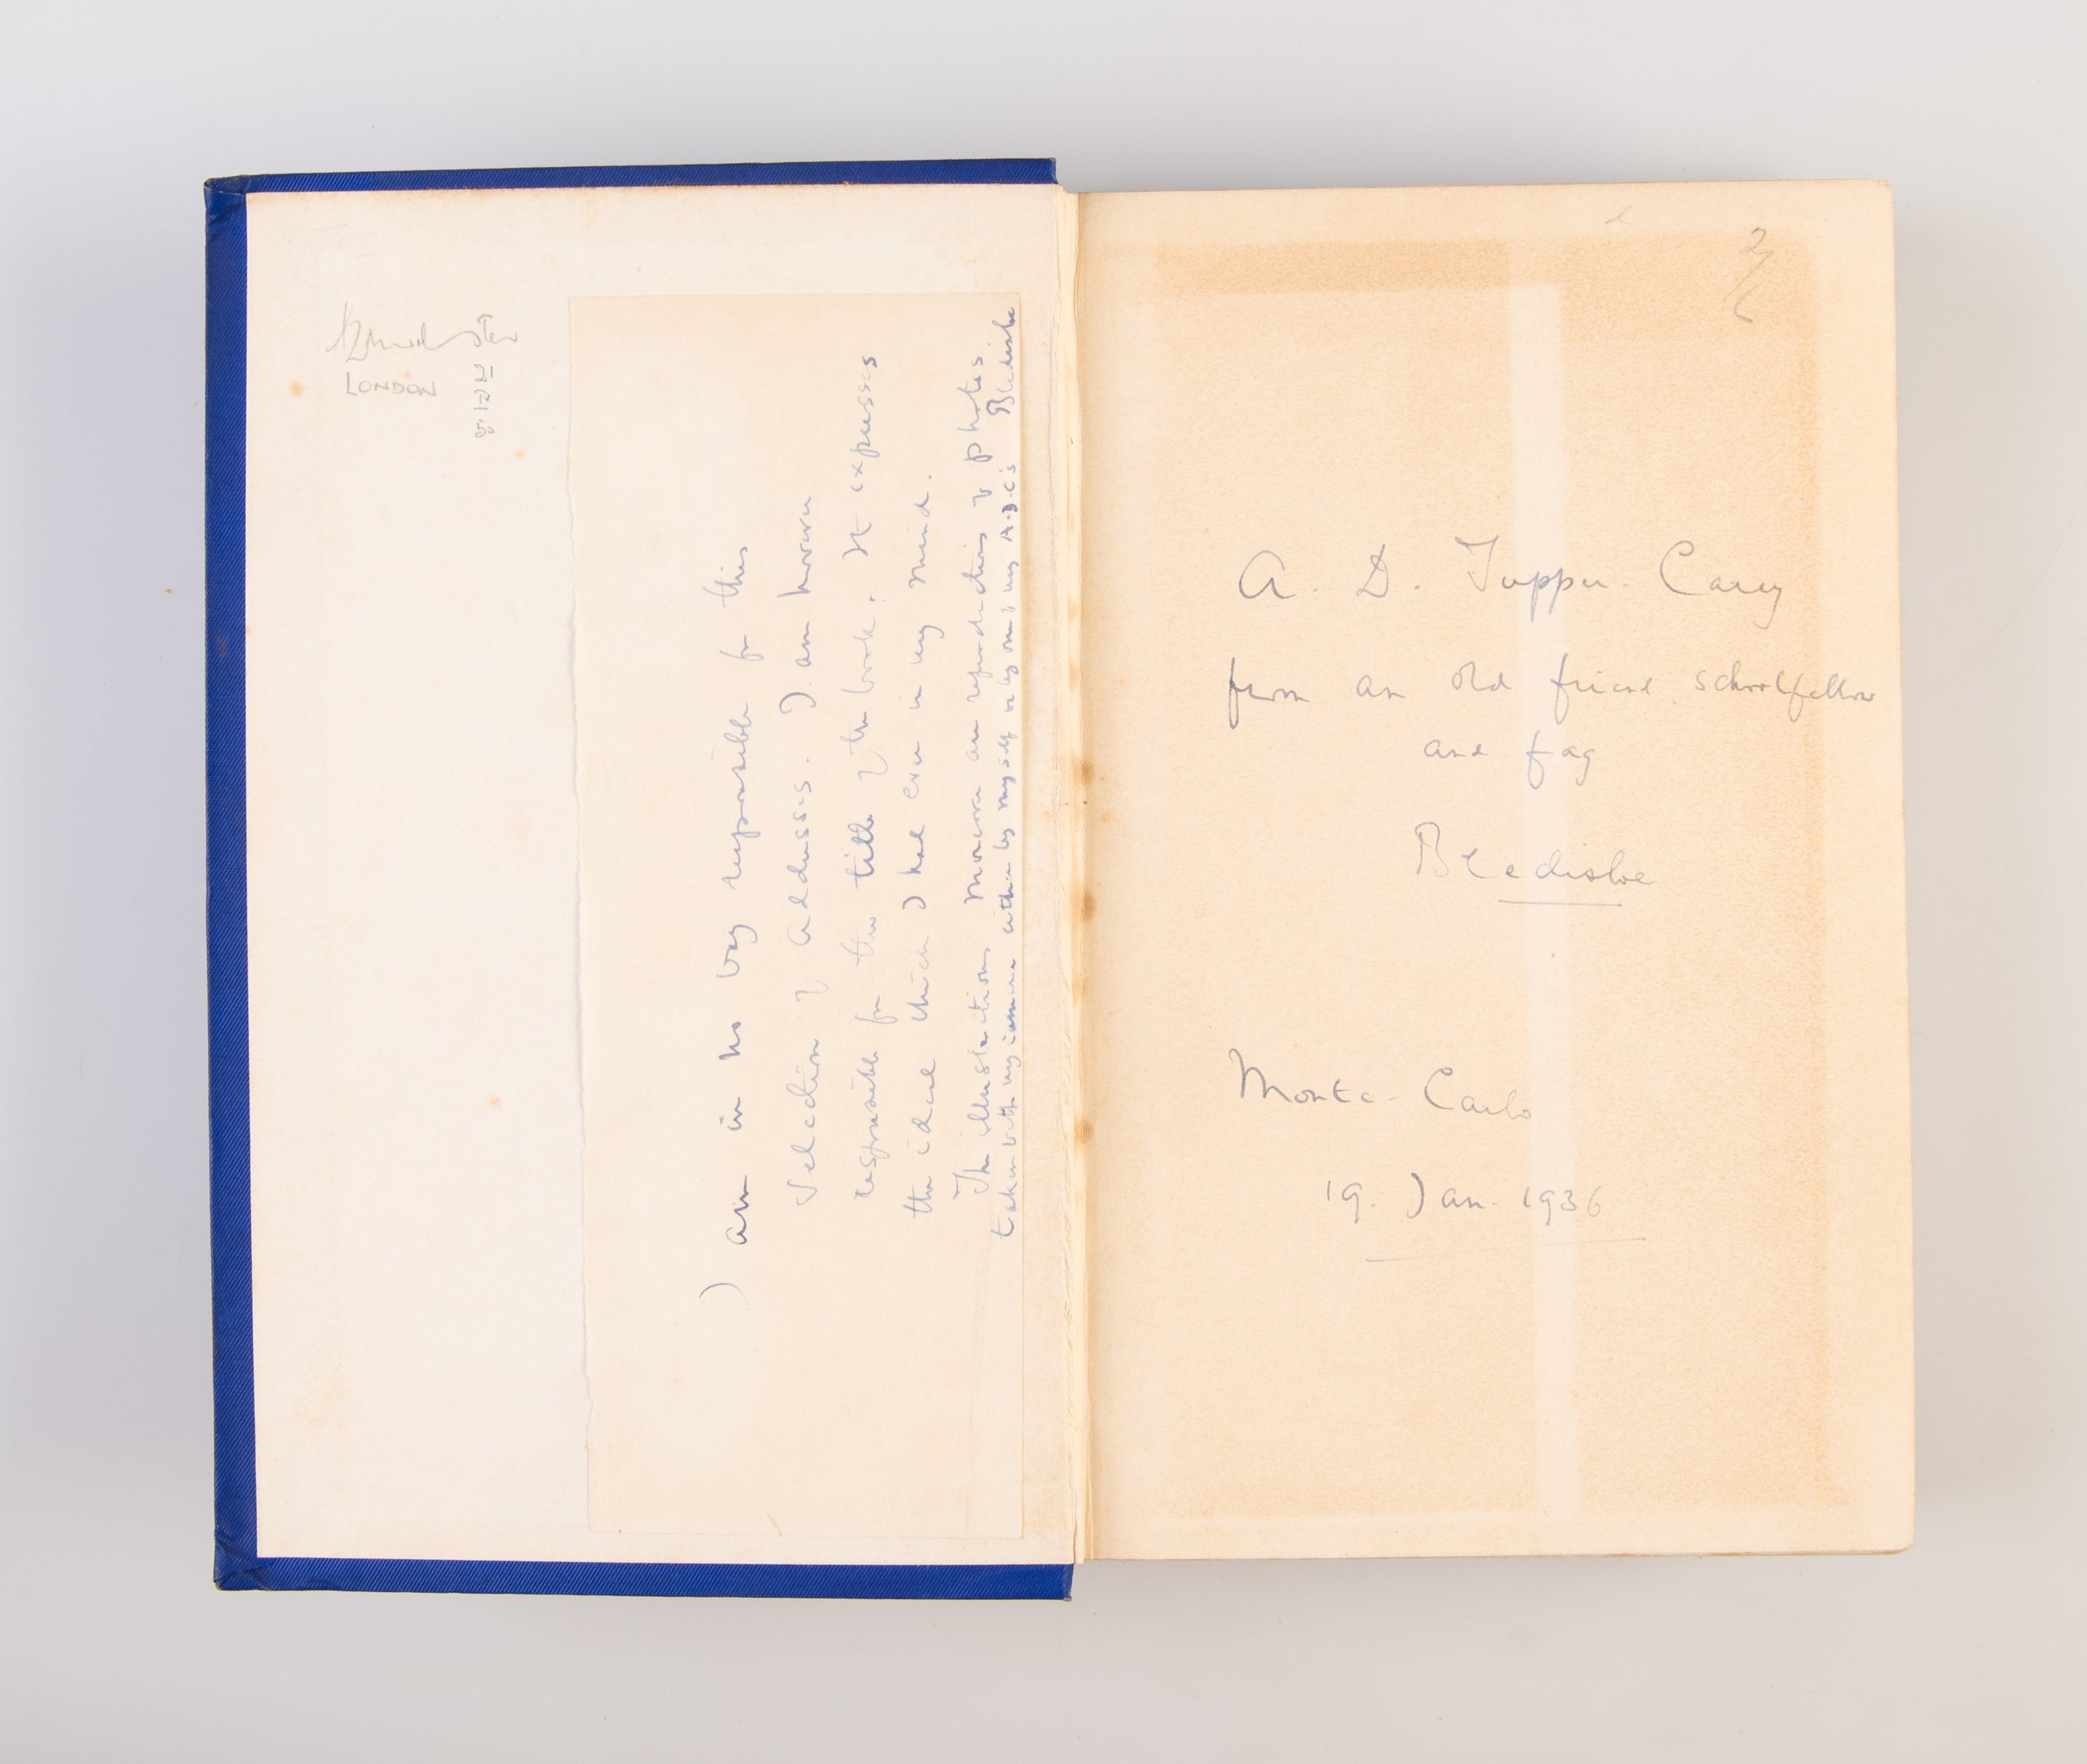 LONDON
I am in no way responsible for this
selection of addresses. I am however
responsible for the title of the book. It expresses
the ideal which I had ever in my mind.
The illustrations moreover are reproductions of photos
taken with my camera either by myself or by one of my A.D.C's Bledisloe
2/6
A. D. Tupper-Carey
from an old friend schoolfellow
and fag
Bledisloe
Monte-Carlo
19. Jan. 1936